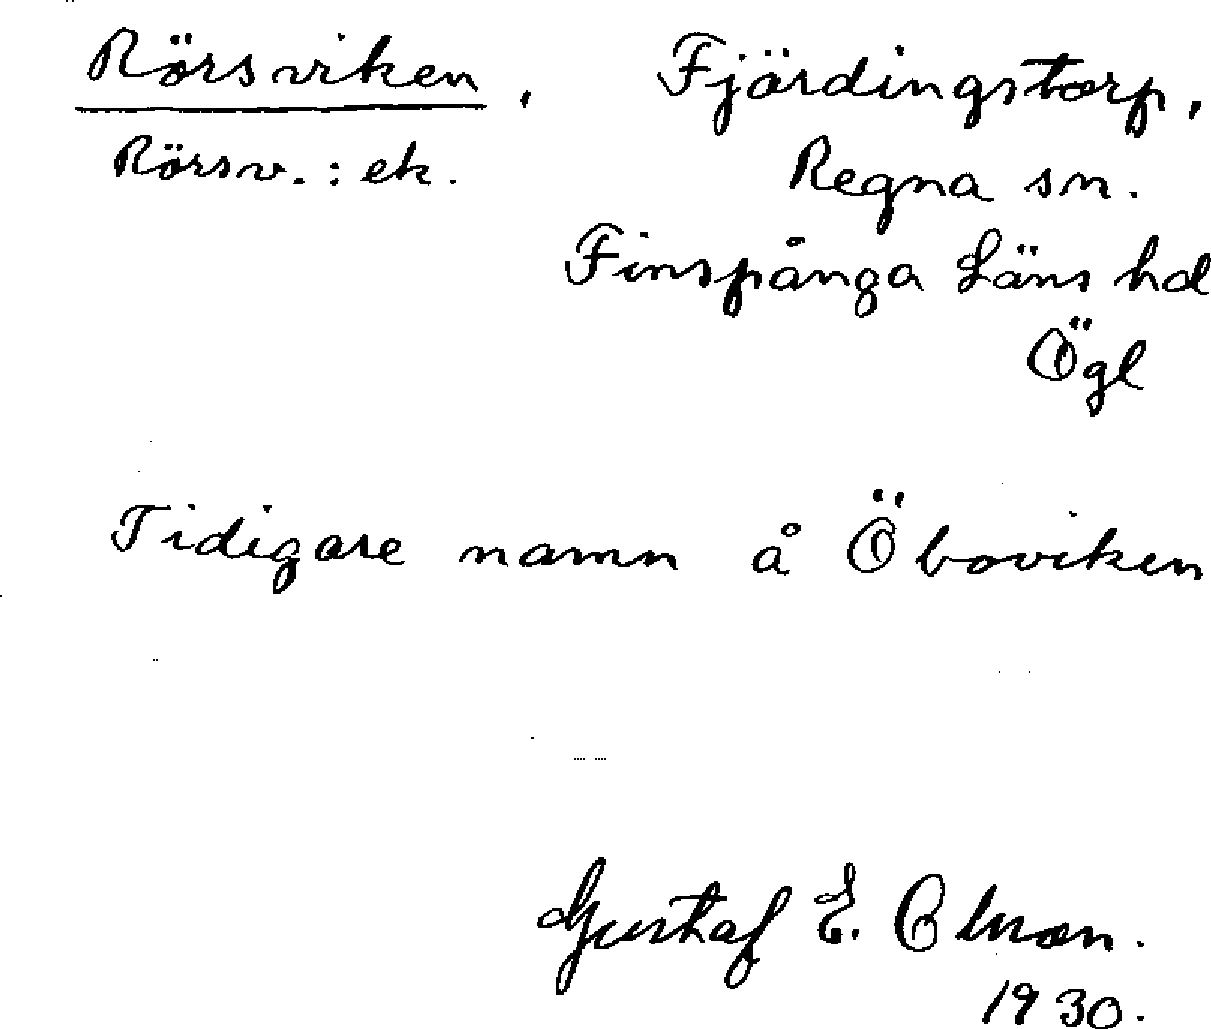 Rörsviken, Fjärdingstorp,
Rörsv.: ek. Regna sn.
Finspånga Läns hd
Ögl
Tidigare namn å Öboviken
Gustaf E. Olsson.
1930.